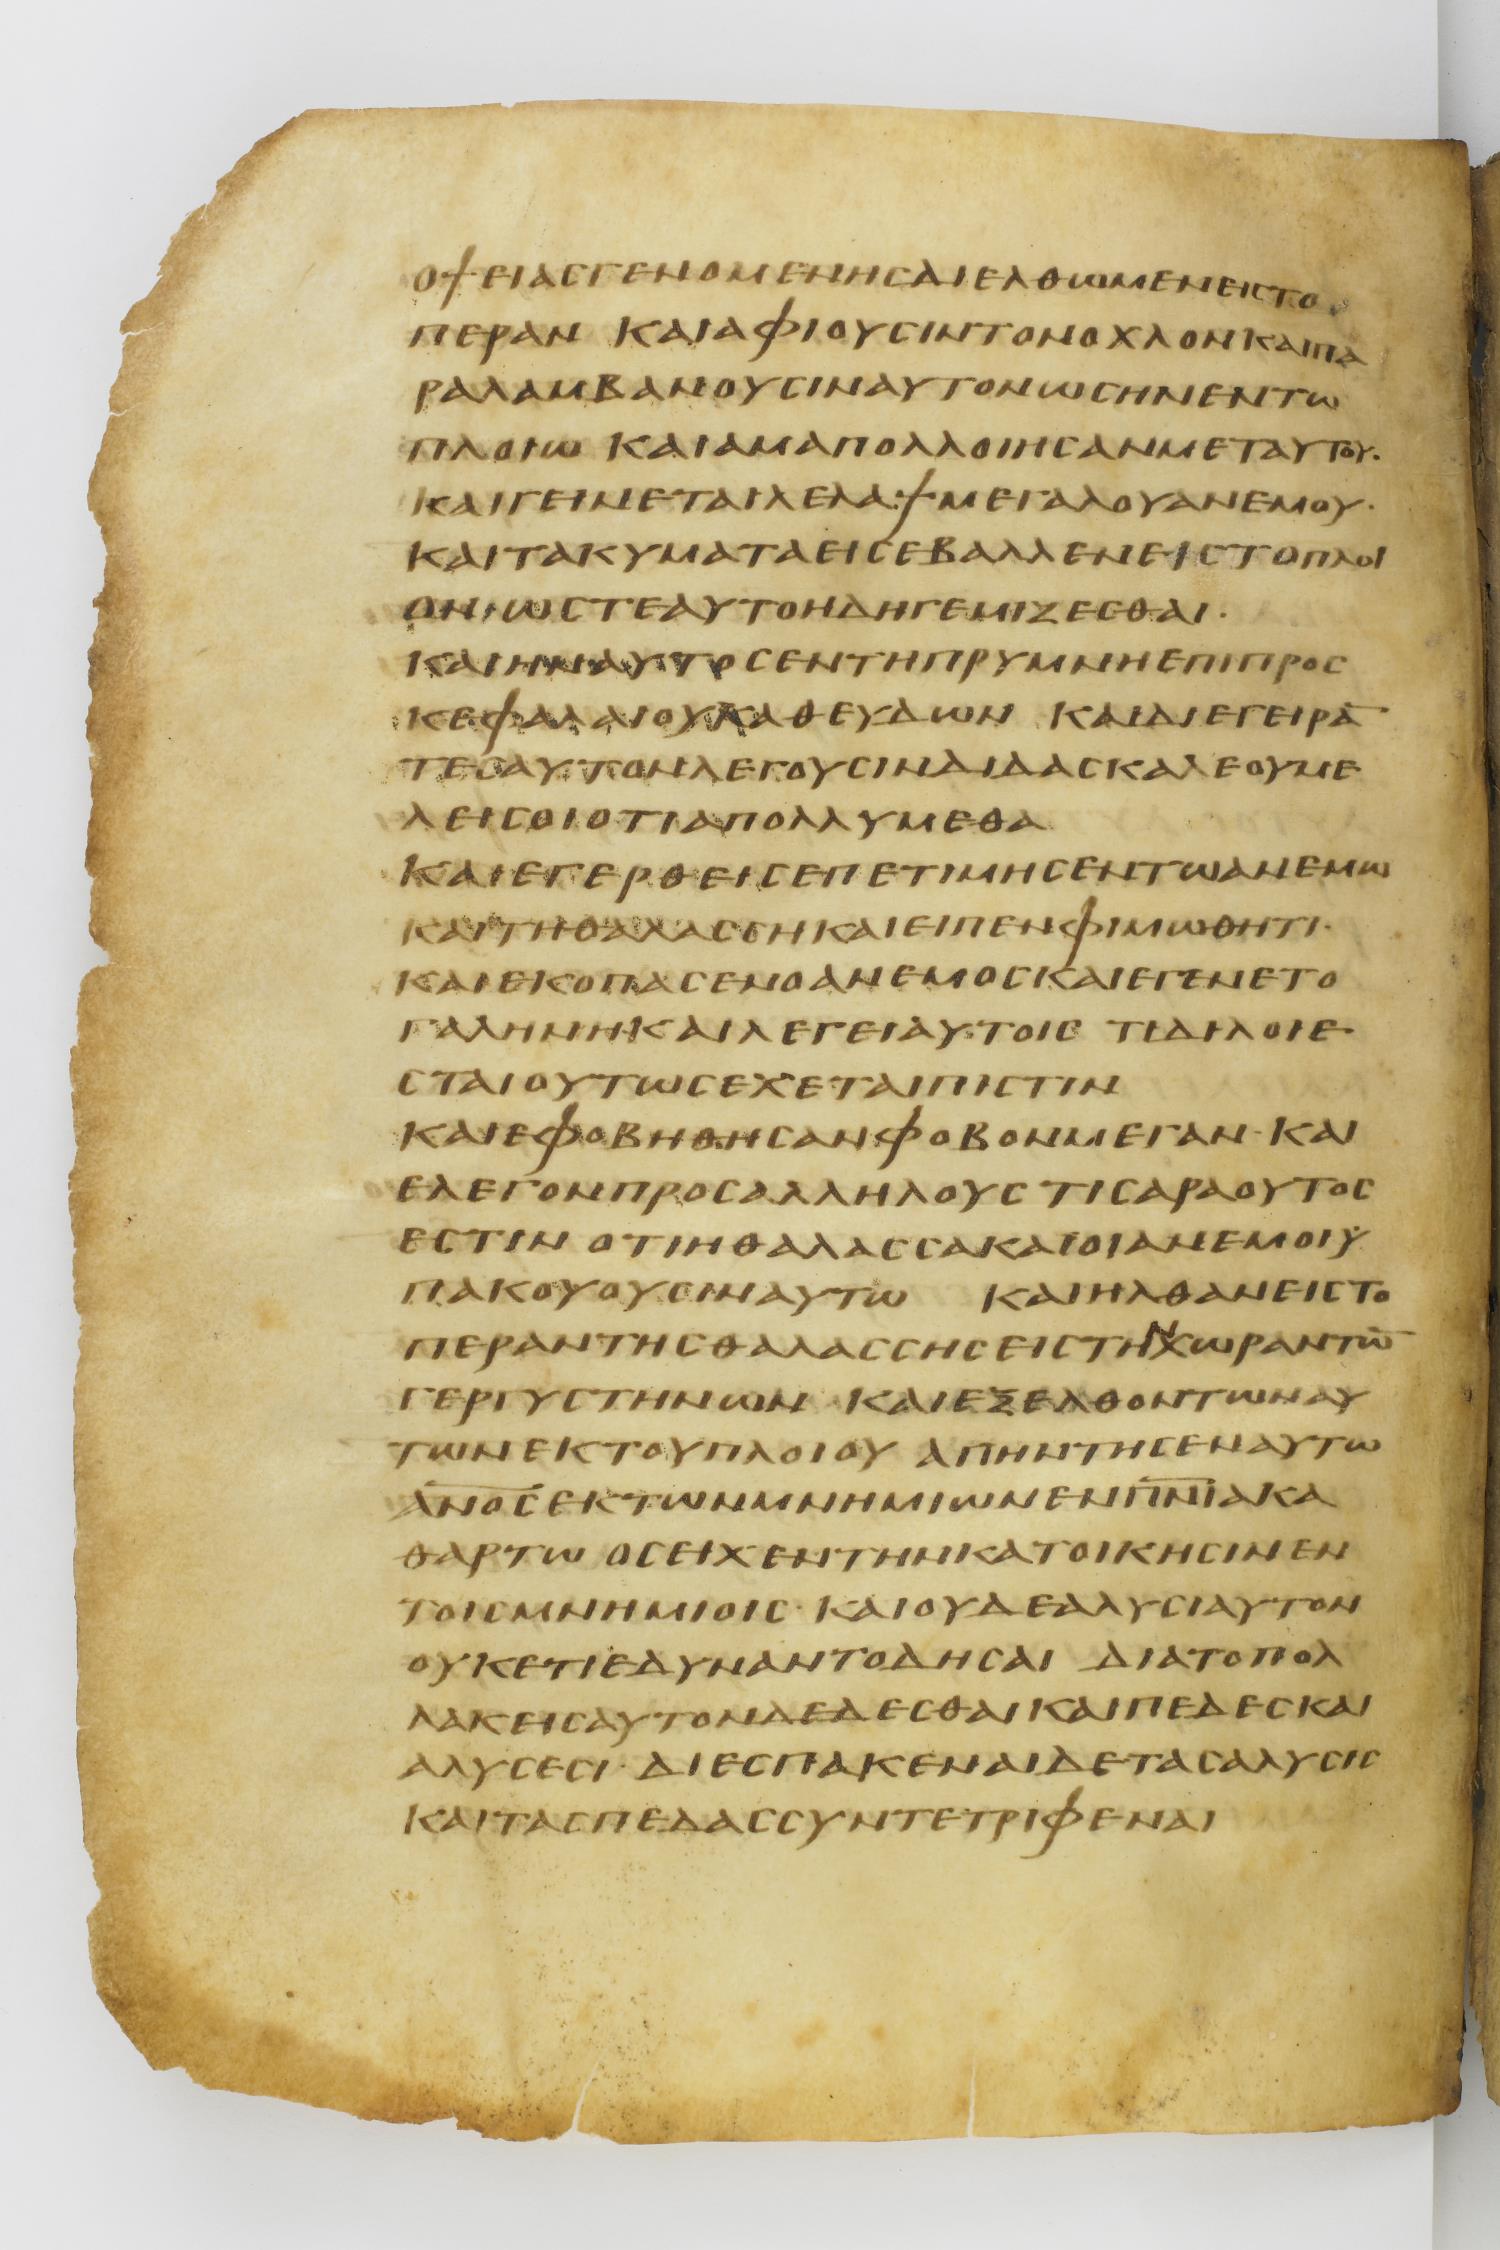 ΟΨΕΙΑΣΓΕΝΟΜΕΝΗΣΔΙΕΛΘΩΜΕΝΕΙΣΤΟ
ΠΕΡΑΝ ΚΑΙΑΦΙΟΥΣΙΝΤΟΝΟΧΛΟΝΚΑΙΠΑ
ΡΑΛΑΜΒΑΝΟΥΣΙΝΑΥΤΟΝΩΣΗΝΕΝΤΩ
ΠΛΟΙΩ ΚΑΙΑΜΑΠΟΛΛΟΙΗΣΑΝΜΕΤΑΥΤΟΥ·
ΚΑΙΓΕΙΝΕΤΑΙΛΕΛΑΨΜΕΓΑΛΟΥΑΝΕΜΟΥ·
ΚΑΙΤΑΚΥΜΑΤΑΕΙΣΕΒΑΛΛΕΝΕΙΣΤΟΠΛΟΙ
ΟΝΩΣΤΕΑΥΤΟΗΔΗΓΕΜΙΖΕΣΘΑΙ·
ΚΑΙΗΝΑΥΤΟΣΕΝΤΗΠΡΥΜΝΗΕΠΙΠΡΟΣ
ΚΕΦΑΛΑΙΟΥΚΑΘΕΥΔΩΝ ΚΑΙΔΙΕΓΕΙΡΑ̅
ΤΕΣΑΥΤΟΝΛΕΓΟΥΣΙΝΔΙΔΑΣΚΑΛΕΟΥΜΕ
ΛΕΙΣΟΙΟΤΙΑΠΟΛΛΥΜΕΘΑ
ΚΑΙΕΓΕΡΘΕΙΣΕΠΕΤΙΜΗΣΕΝΤΩΑΝΕΜΩ
ΚΑΙΤΗΘΑΛΑΣΣΗΚΑΙΕΙΠΕΝΦΙΜΩΘΗΤΙ·
ΚΑΙΕΚΟΠΑΣΕΝΟΑΝΕΜΟΣΚΑΙΕΓΕΝΕΤΟ
ΓΑΛΗΝΗΚΑΙΛΕΓΕΙΑΥΤΟΙΣ ΤΙΔΙΛΟΙΕ
ΣΤΑΙΟΥΤΩΣΕΧΕΤΑΙΠΙΣΤΙΝ
ΚΑΙΕΦΟΒΗΘΗΣΑΝΦΟΒΟΝΜΕΓΑΝ·ΚΑΙ
ΕΛΕΓΟΝΠΡΟΣΑΛΛΗΛΟΥΣ ΤΙΣΑΡΑΟΥΤΟΣ
ΕΣΤΙΝ ΟΤΙΗΘΑΛΑΣΣΑΚΑΙΟΙΑΝΕΜΟΙΫ
ΠΑΚΟΥΟΥΣΙΝΑΥΤΩ ΚΑΙΗΛΘΑΝΕΙΣΤΟ
ΠΕΡΑΝΤΗΣΘΑΛΑΣΣΗΣΕΙΣΤΗΝΧΩΡΑΝΤΩ̅
ΓΕΡΓΥΣΤΗΝΩΝ ΚΑΙΕΞΕΛΘΟΝΤΩΝΑΥ
ΤΩΝΕΚΤΟΥΠΛΟΙΟΥ ΑΠΗΝΤΗΣΕΝΑΥΤΩ
Α̅Ν̅Ο̅Σ̅ΕΚΤΩΝΜΝΗΜΙΩΝΕΝΠ̅Ν̅Ι̅ΑΚΑ
ΘΑΡΤΩ ΟΣΕΙΧΕΝΤΗΝΚΑΤΟΙΚΗΣΙΝΕΝ
ΤΟΙΣΜΝΗΜΙΟΙΣ·ΚΑΙΟΥΔΕΑΛΥΣΙΑΥΤΟΝ
ΟΥΚΕΤΙΕΔΥΝΑΝΤΟΔΗΣΑΙ ΔΙΑΤΟΠΟΛ
ΛΑΚΕΙΣΑΥΤΟΝΔΕΔΕΣΘΑΙΚΑΙΠΕΔΕΣΚΑΙ
ΑΛΥΣΕΣΙ·ΔΙΕΣΠΑΚΕΝΑΙΔΕΤΑΣΑΛΥΣΙΣ
ΚΑΙΤΑΣΠΕΔΑΣΣΥΝΤΕΤΡΙΦΕΝΑΙ